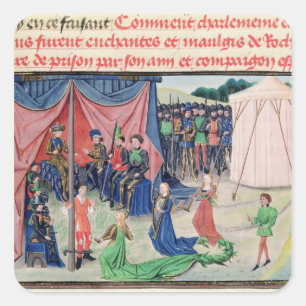 us en ce faisant Comment charlemeine e
nis furent enchantes et maulgis de Roch
re de prison par son ann et compaignon ess